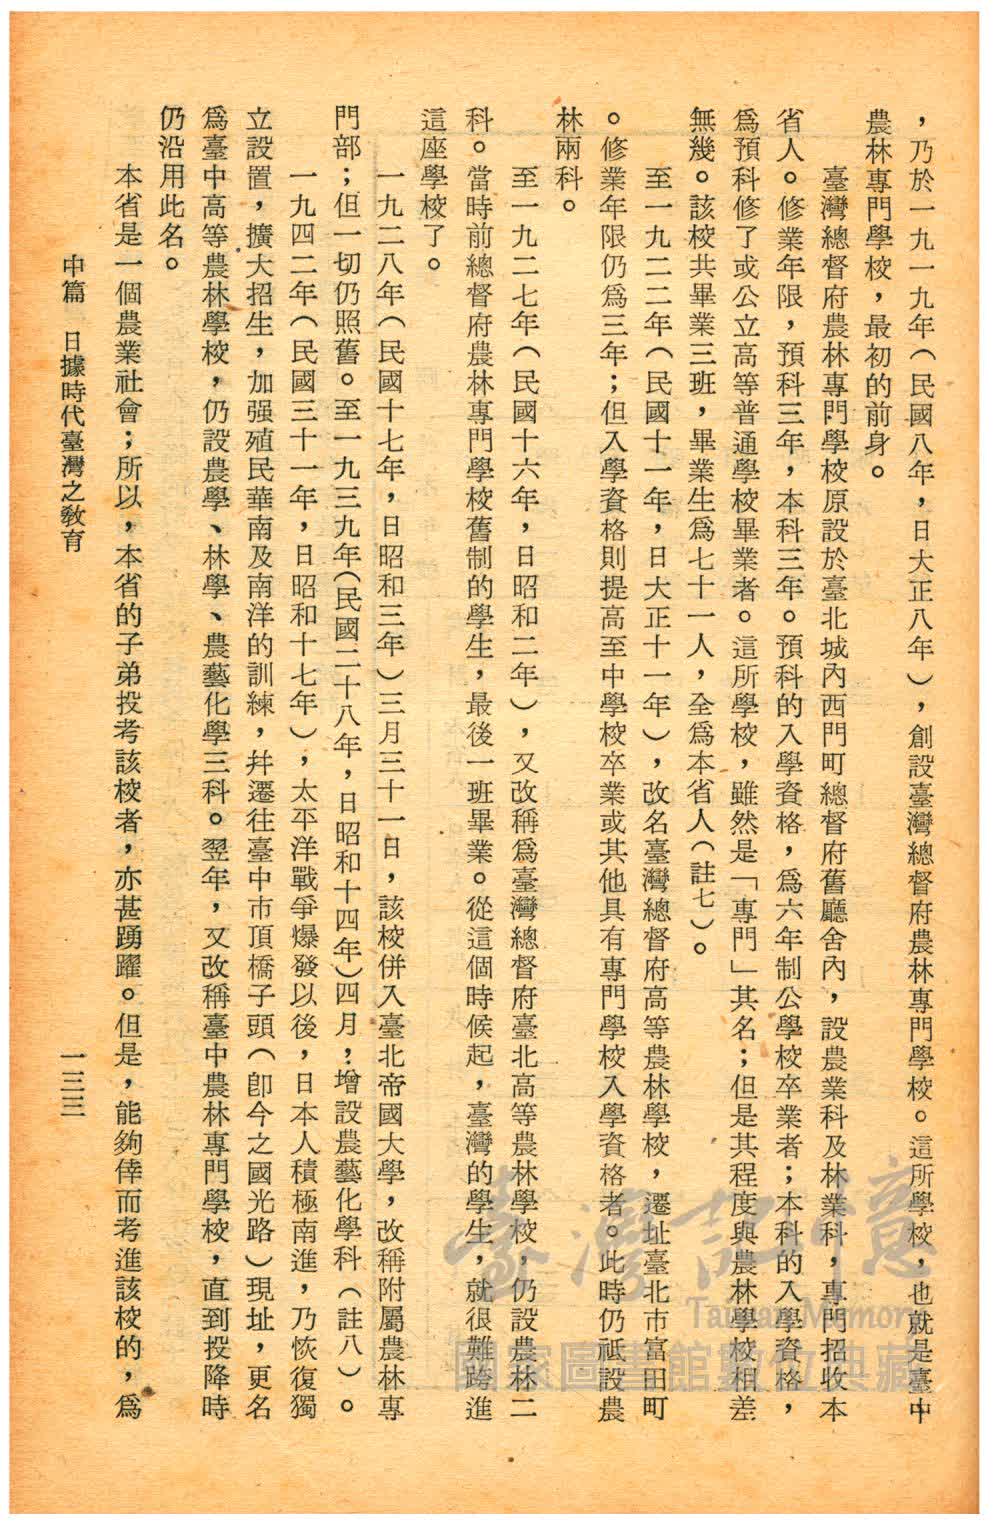 ，乃於一九一九年（民國八年，日大正八年），創設臺灣總督府農林專門學校。這所學校，也就是臺中
農林專門學校，最初的前身。
臺灣總督府農林專門學校原設於臺北城內西門町總督府舊廳舍內，設農業科及林業科，專門招收本
省人。修業年限，預科三年，本科三年。預科的入學資格，爲六年制公學校卒業者；本科的入學資格，
爲預科修了或公立高等普通學校畢業者。這所學校，雖然是「專門」其名；但是其程度與農林學校相差
無幾。該校共畢業三班，畢業生爲七十一人，全爲本省人（註七）。
至一九二二年（民國十一年，日大正十一年），改名臺灣總督府高等農林學校，遷址臺北市富田町
。修業年限仍爲三年；但入學資格則提高至中學校卒業或其他具有專門學校入學資格者。此時仍祗設農
林兩科。
至一九二七年（民國十六年，日昭和二年），又改稱爲臺灣總督府臺北高等農林學校，仍設農林二
科。當時前總督府農林專門學校舊制的學生，最後一班畢業。從這個時候起，臺灣的學生，就很難跨進
這座學校了。
一九二八年（民國十七年，日昭和三年）三月三十一日，該校併入臺北帝國大學，改稱附屬農林專
門部；但一切仍照舊。至一九三九年（民國二十八年，日昭和十四年）四月，增設農藝化學科（註八）。
一九四二年（民國三十一年，日昭和十七年），太平洋戰爭爆發以後，日本人積極南進，乃恢復獨
立設置，擴大招生，加强殖民華南及南洋的訓練，幷遷往臺中市頂橋子頭（卽今之國光路）現址，更名
爲臺中高等農林學校，仍設農學、林學、農藝化學三科。翌年，又改稱臺中農林專門學校，直到投降時
仍沿用此名。
本省是一個農業社會；所以，本省的子弟投考該校者，亦甚踴躍。但是，能夠倖而考進該校的，爲
中篇　日據時代臺灣之敎育
一三三
臺灣記憶
Taiwan Memory
國家圖書館數位典藏